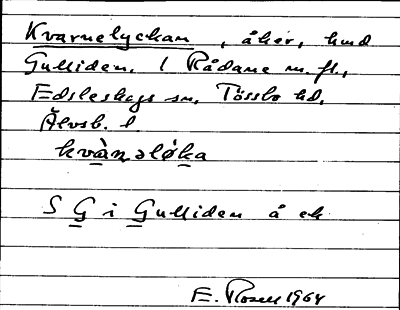 Kvarnelyckan, åker, hmd
Gulliden, 1 Rådane m. fl.,
Edsleskogs sn, Tössbo hd,
Älvsb. l.
kvànəlø̀ka
S G i Gulliden å ek
E. Rosell 1964